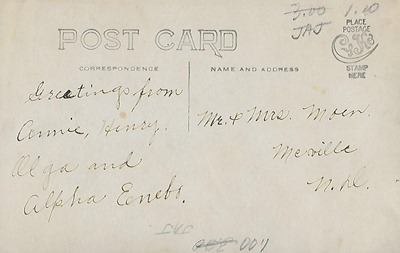 3.00 1.00
JAJ
PLACE
POSTAGE
STAMP
HERE
POST CARD
CORRESPONDENCE
NAME AND ADDRESS
Greetings from
Annie, Henry.
Olga and
Alpha Enebo.
Mr. & Mrs. Moen.
Merville
N. D.